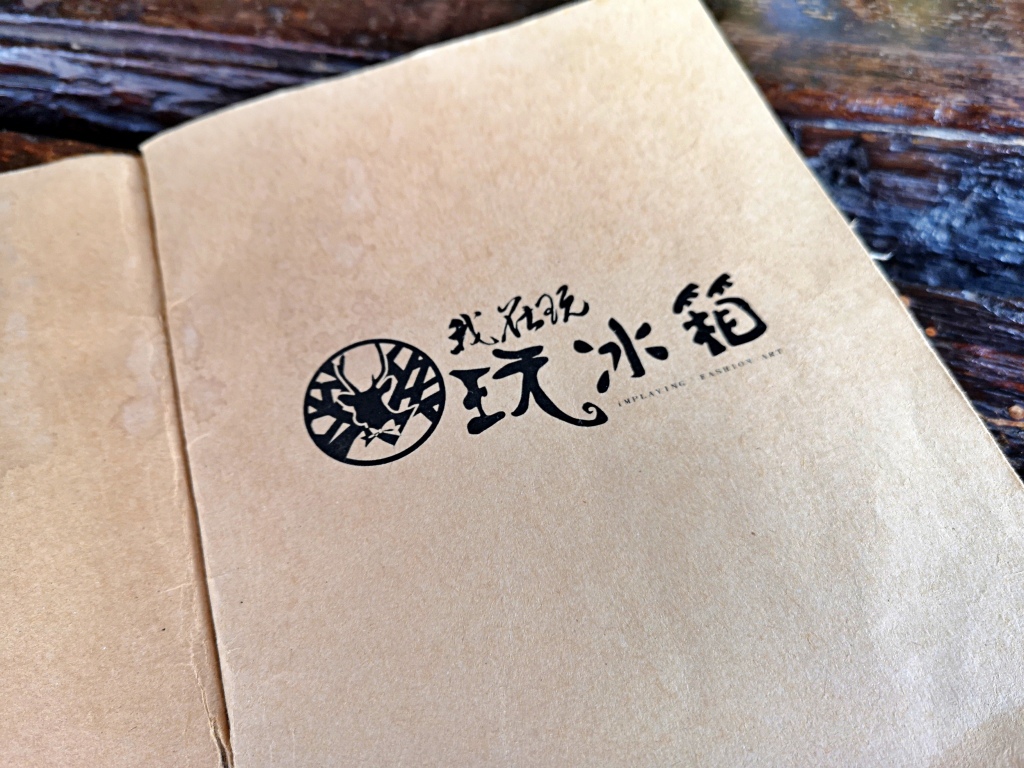 我在玩
玩冰箱
iMPLAYING · FASHION ART